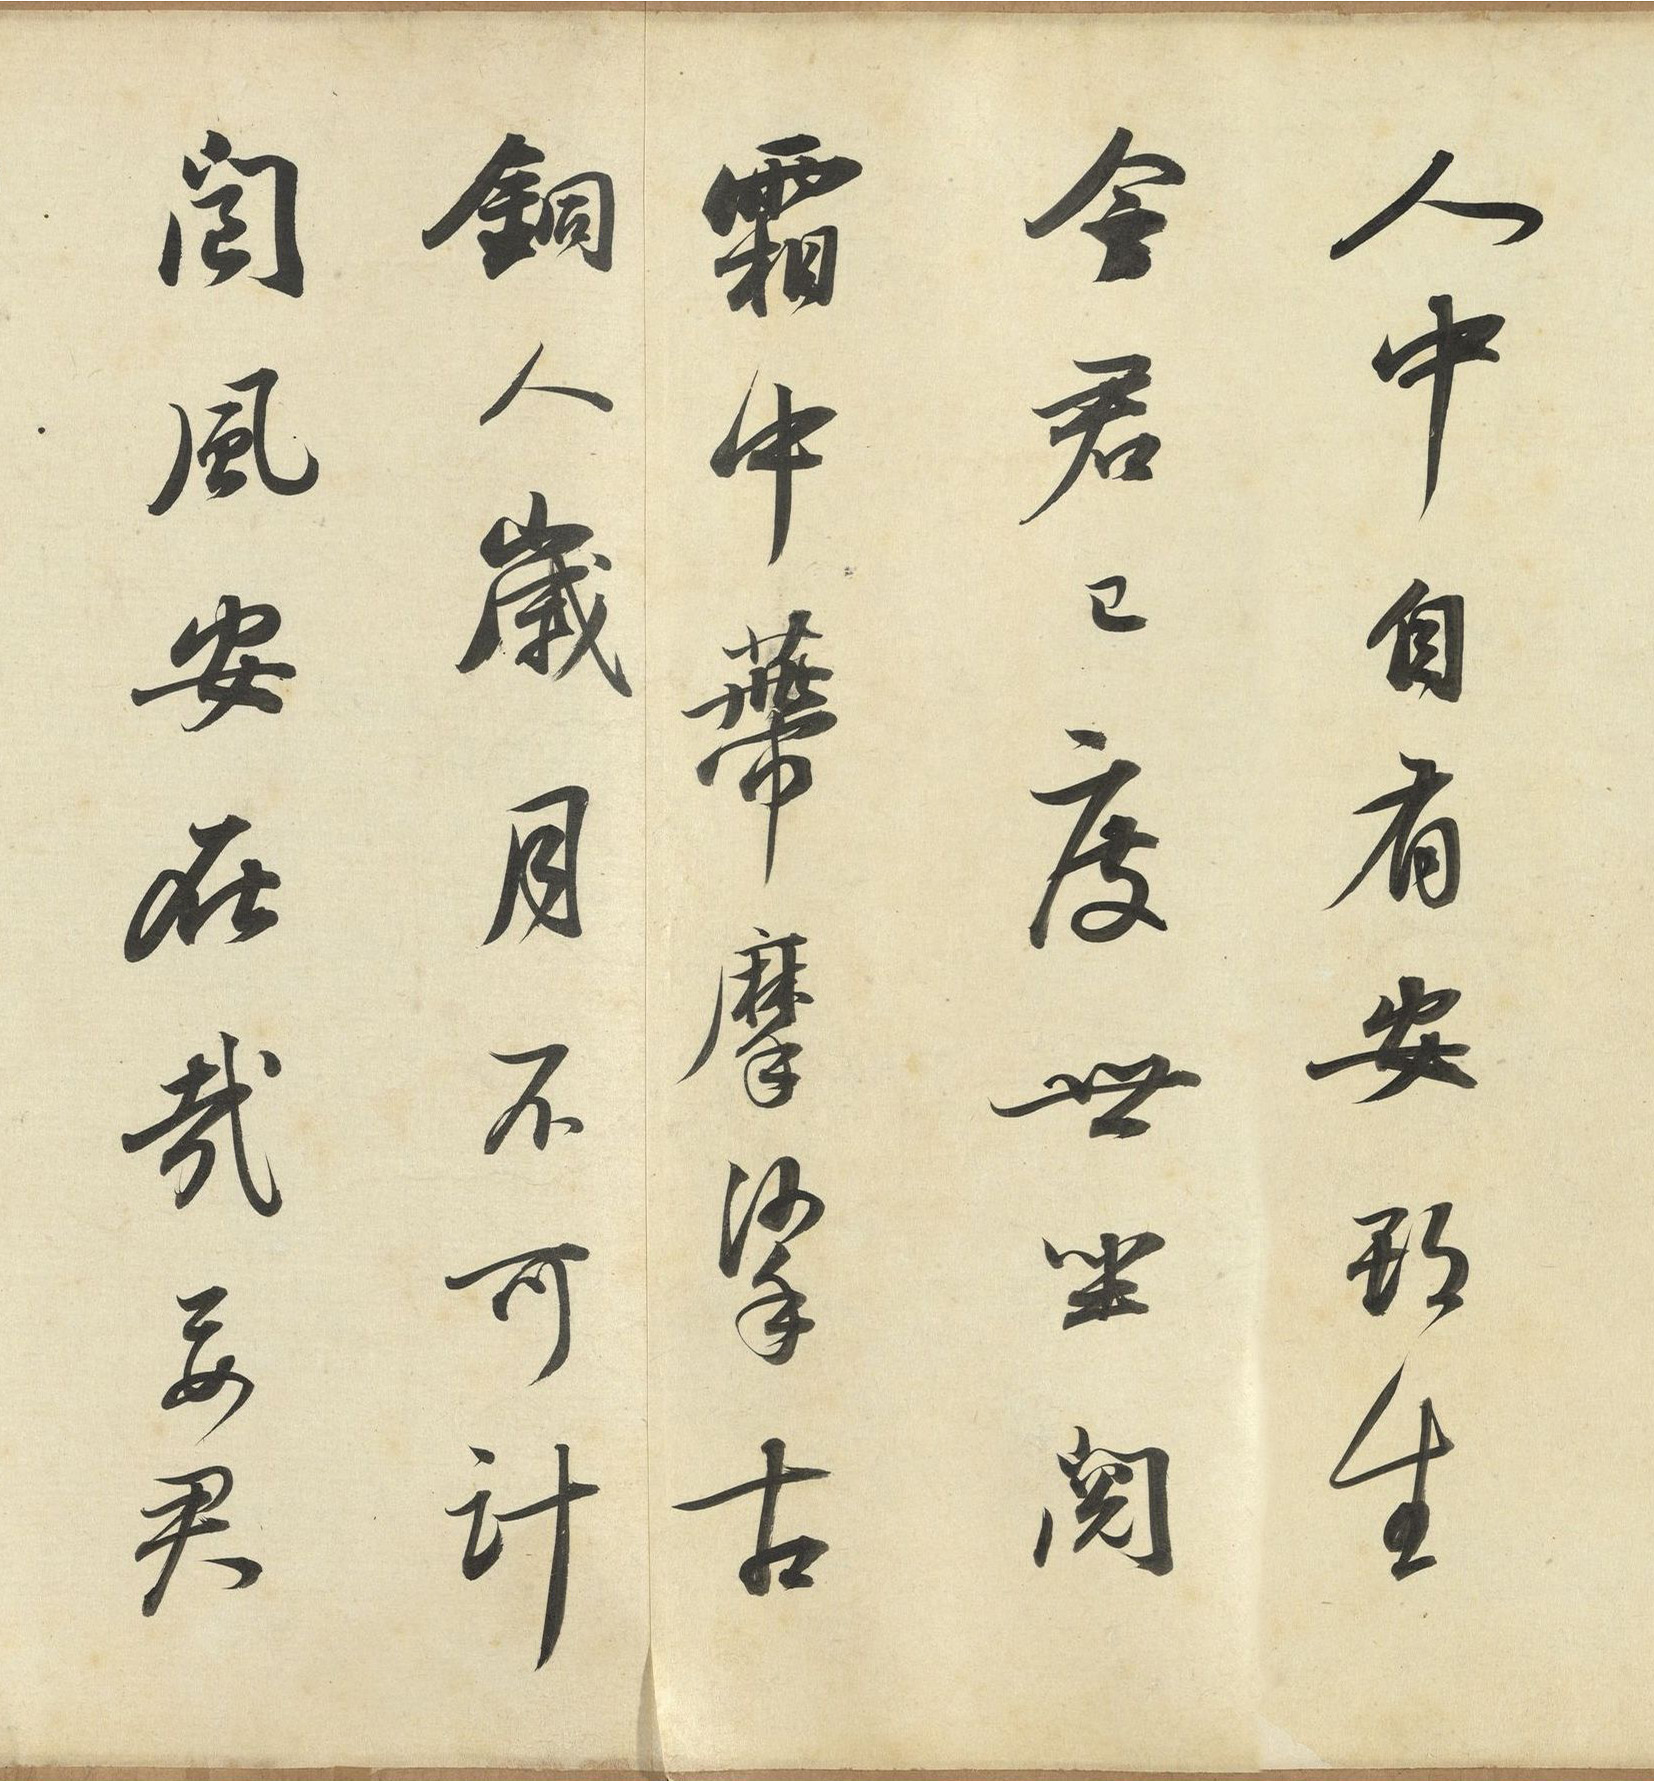 人中自有安期生
今君已度世坐閱
霜中蔕摩挲古
銅人歲月不可計
閬風安在哉要君